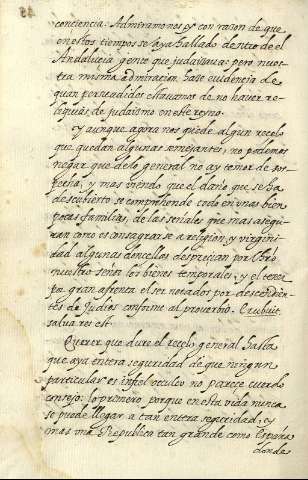 conciencia. Admiramonos ys con rason de que
en estos tiempos se aya hallado dentro de el
Andalucia gente que judaisava: pero nues-
tra misma admiracion hase evidencia de
quan persuadidos estavamos de no haver re-
liquias de judaismo en este reyno.
Y aunque agora nos quede algun recelo
que quedan algunas semejantes; no podemos
negar que de lo general no ay temor de sos-
pecha, y mas viendo que el daño que se ha
descubierto se comprehende todo en unas bien
pocas familias, de las señales que mas asegu-
ran como es consagrarse a religion, y virgini-
dad algunas doncellas, despreçian por Dio
nuestro señor los bienes temporales, y el tener
por gran afrenta el ser notados por descendien-
tes de Judios conforme al proverbio. Erubuit
salva res est.
Querer que dure el recelo general hasta
que aya entera seguridad de que ningun
particular es infiel oculto no parece cuerdo
consejo: lo primero porque en esta vida nunca
se puede llegar a tan entera seguridad, y
mas una Republica tan grande como España
donde